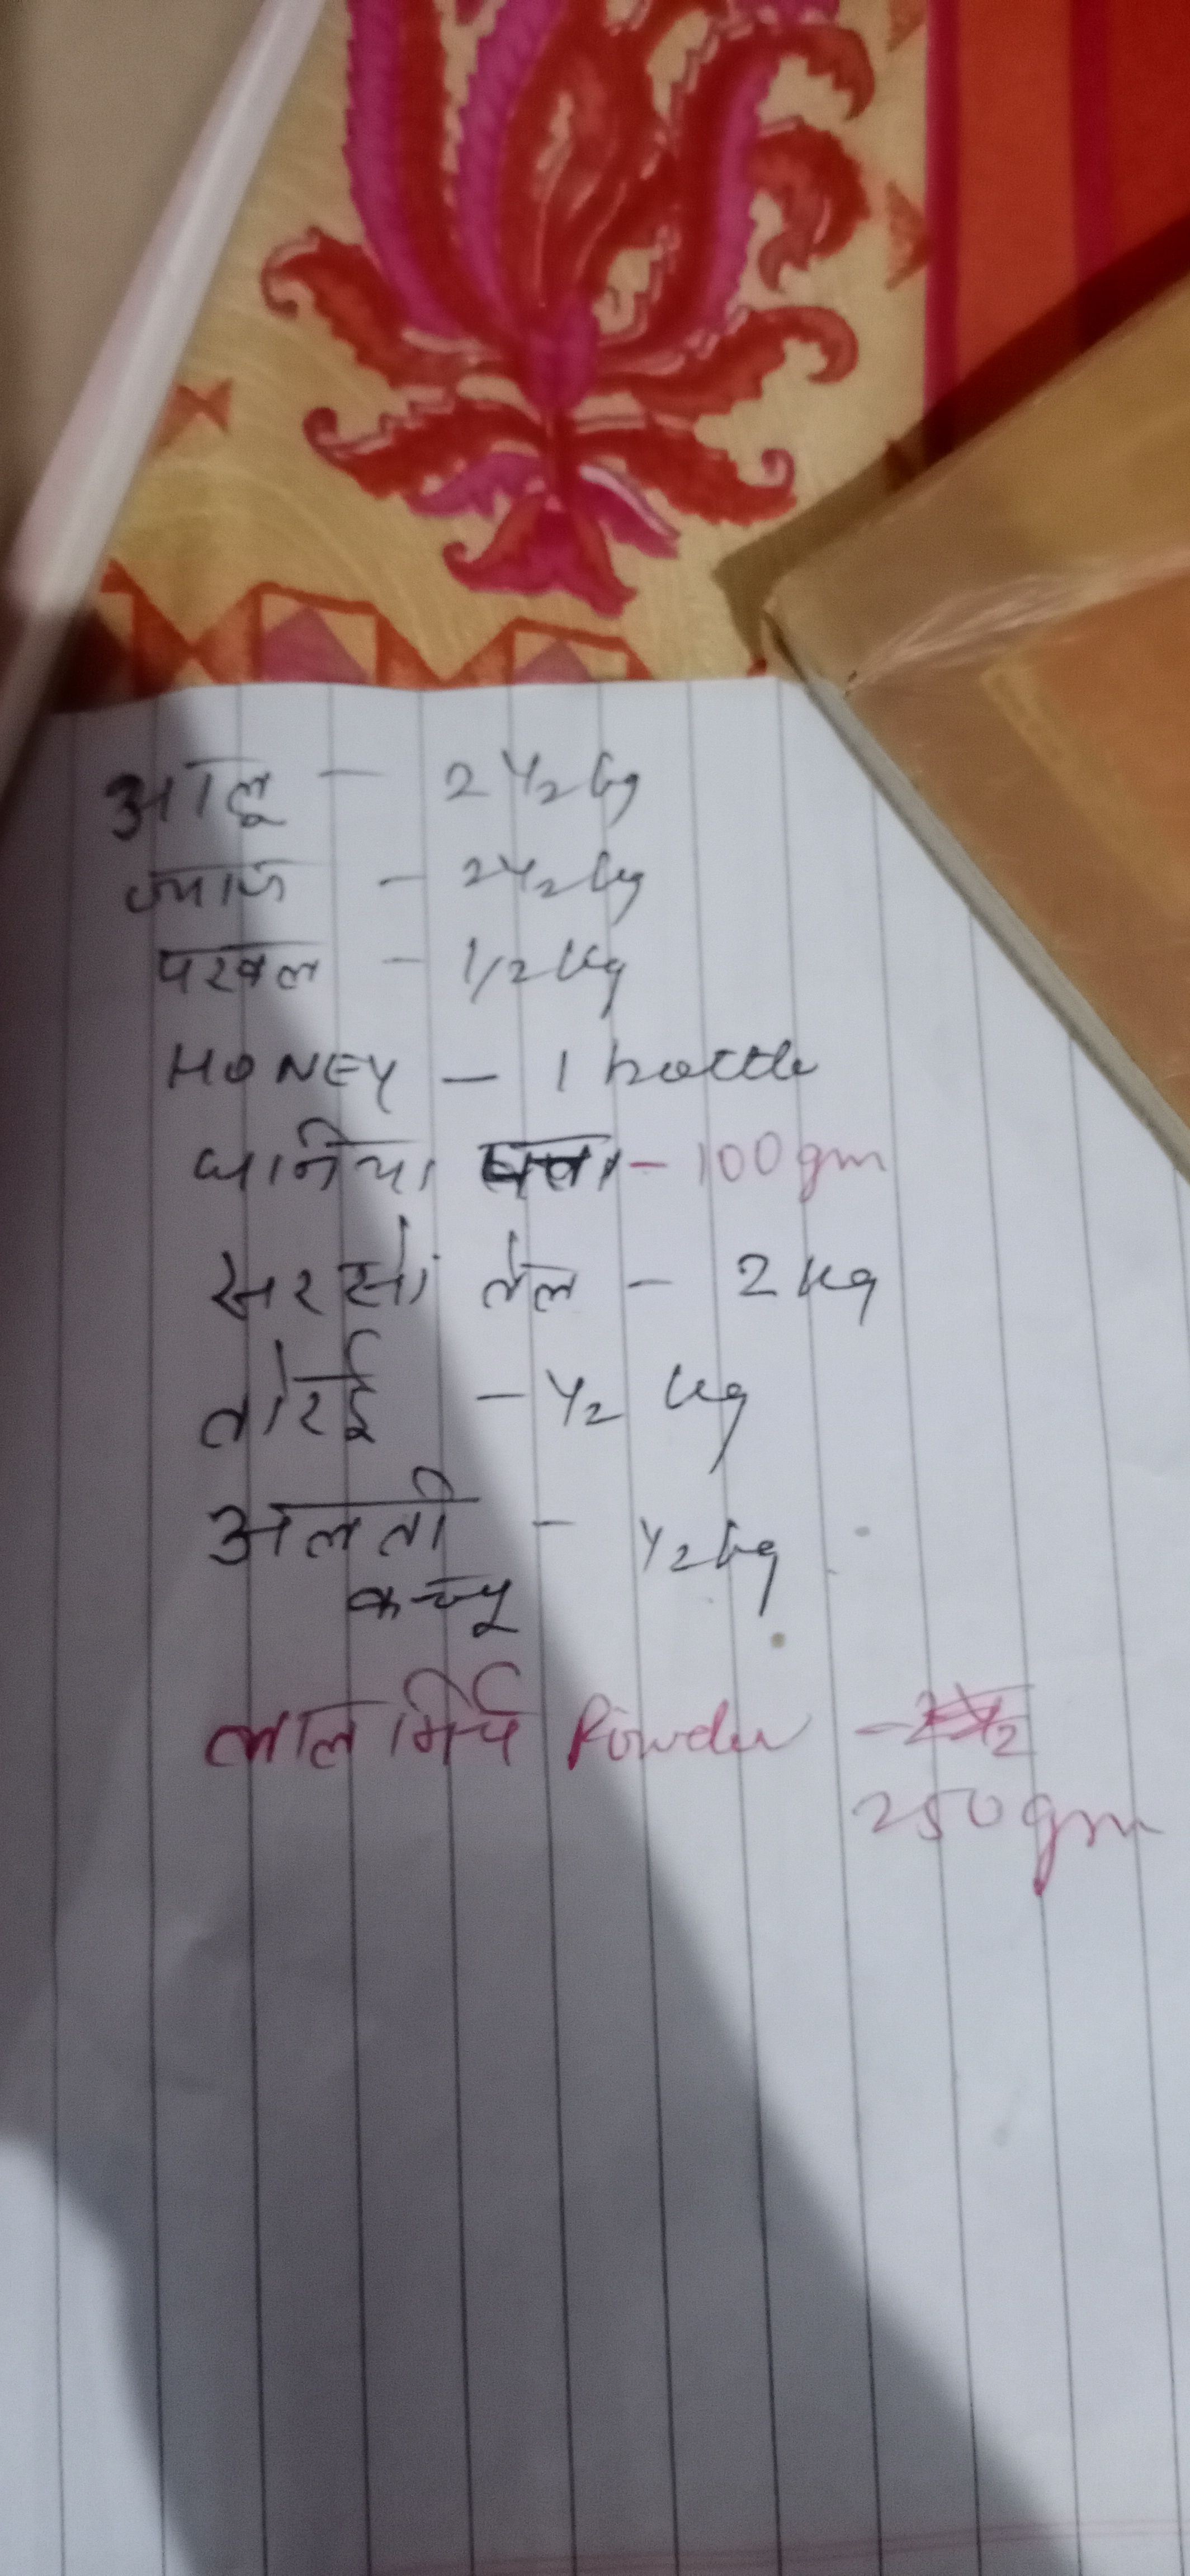 आलू - 2 1/2 kg
प्याज - 2 1/2 kg
परवल - 1/2 kg
HONEY - 1 bottle
धनिया - 100 gm
सरसों तेल - 2 kg
तोरई - 1/2 kg
अलती - 1/2 kg
लाल मिर्च Powder -
250 gm